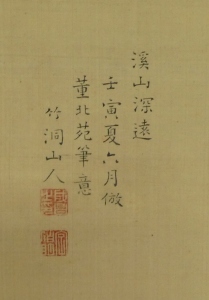 溪山深遠
壬寅夏六月倣
董北苑筆意
竹洞山人